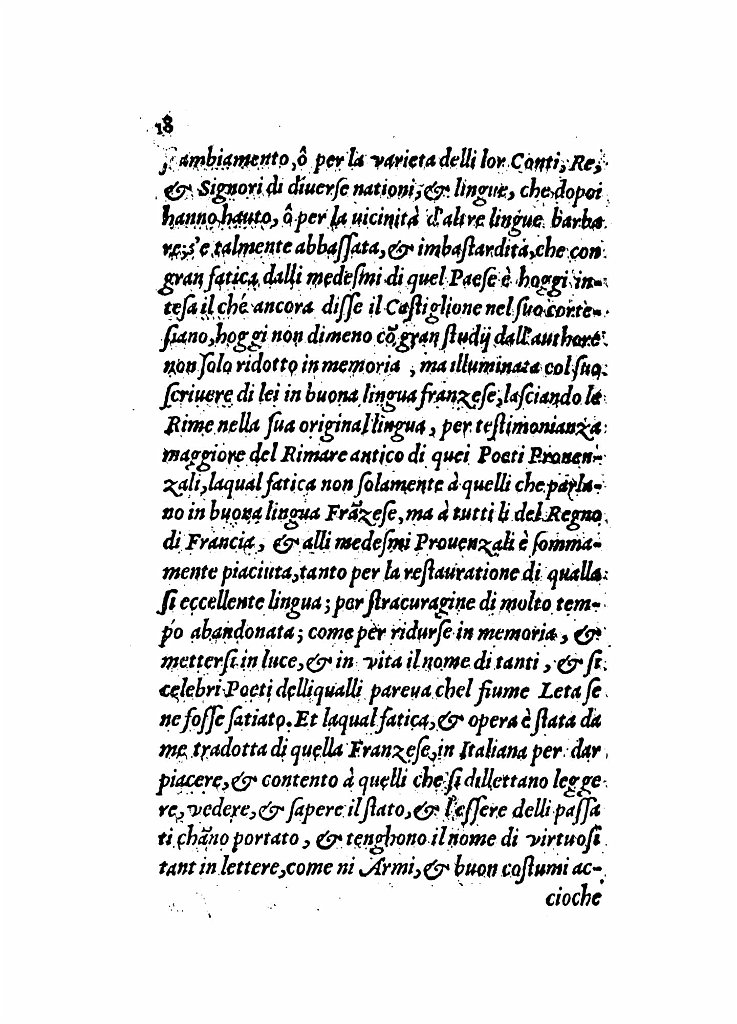 18
cambiamento, ô per la varieta delli lor Conti, Re,
& Signori di diuerſe nationi, & lingue, che dopoi
hanno hauto, ô per la uicinità d'altre lingue barba
re, s'e talmente abbaſſata, & imbaſtardita, che con
gran fatica dalli medeſmi di quel Paeſe è hoggi in-
teſa il ché ancora diſſe il Caſtiglione nel ſuo corte-
ſiano, hoggi non dimeno cõ gran ſtudij dall'authore
non ſolo ridotto in memoria , ma illuminata col ſuo
ſcriuere di lei in buona lingua franzeſe, laſciando le
Rime nella ſua original lingua, per teſtimonianza
maggiore del Rimare antico di quei Poeti Prouen-
zali, laqual fatica non ſolamente à quelli che parla-
no in buona lingua Frãzeſe, ma à tutti li del Regno
di Francia, & alli medeſmi Prouenzali è ſomma-
mente piaciuta, tanto per la reſtauratione di qualla
ſi eccellente lingua; per ſtracuragine di molto tem-
po abandonata; come per ridurſe in memoria, &
metterſi in luce, & in vita il nome di tanti, & ſi
celebri Poeti delliqualli pareua chel fiume Leta ſe
ne foſſe ſatiato. Et laqual fatica, & opera è ſtata da
me tradotta di quella Franzeſe, in Italiana per dar
piacere, & contento à quelli che ſi dillettano legge
re, vedere, & ſapere il ſtato, & l'eſſere delli paſſa
ti chãno portato , & tenghono il nome di virtuoſi
tant in lettere, come ni Armi, & buon coſtumi ac-
cioche